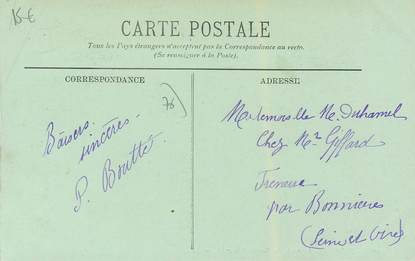 15€
CARTE POSTALE
Tous les Pays étrangers n'acceptent pas la Correspondance au recto.
(Se renseigner à la Poste).
CORRESPONDANCE
78
Baisers
sincères
P. Bouttet
ADRESSE
Mademoiselle M. Duhamel
Chez Mr Giffard
Freneuse
par Bonnières
(Seine et Oise)